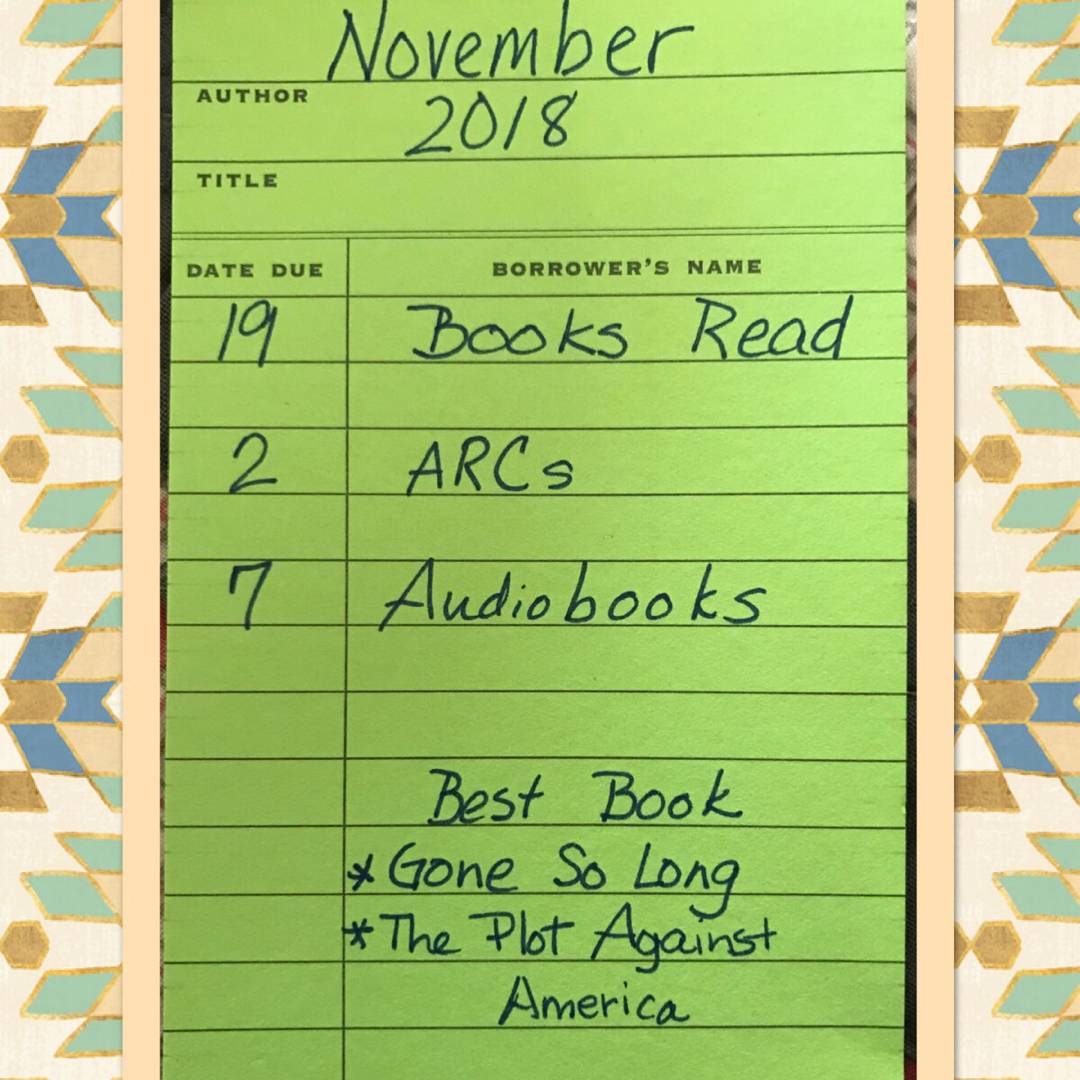 November
AUTHOR
2018
TITLE
DATE DUE BORROWER'S NAME
19 Books Read
2 ARCs
7 Audiobooks
Best Book
* Gone So Long
* The Plot Against
America